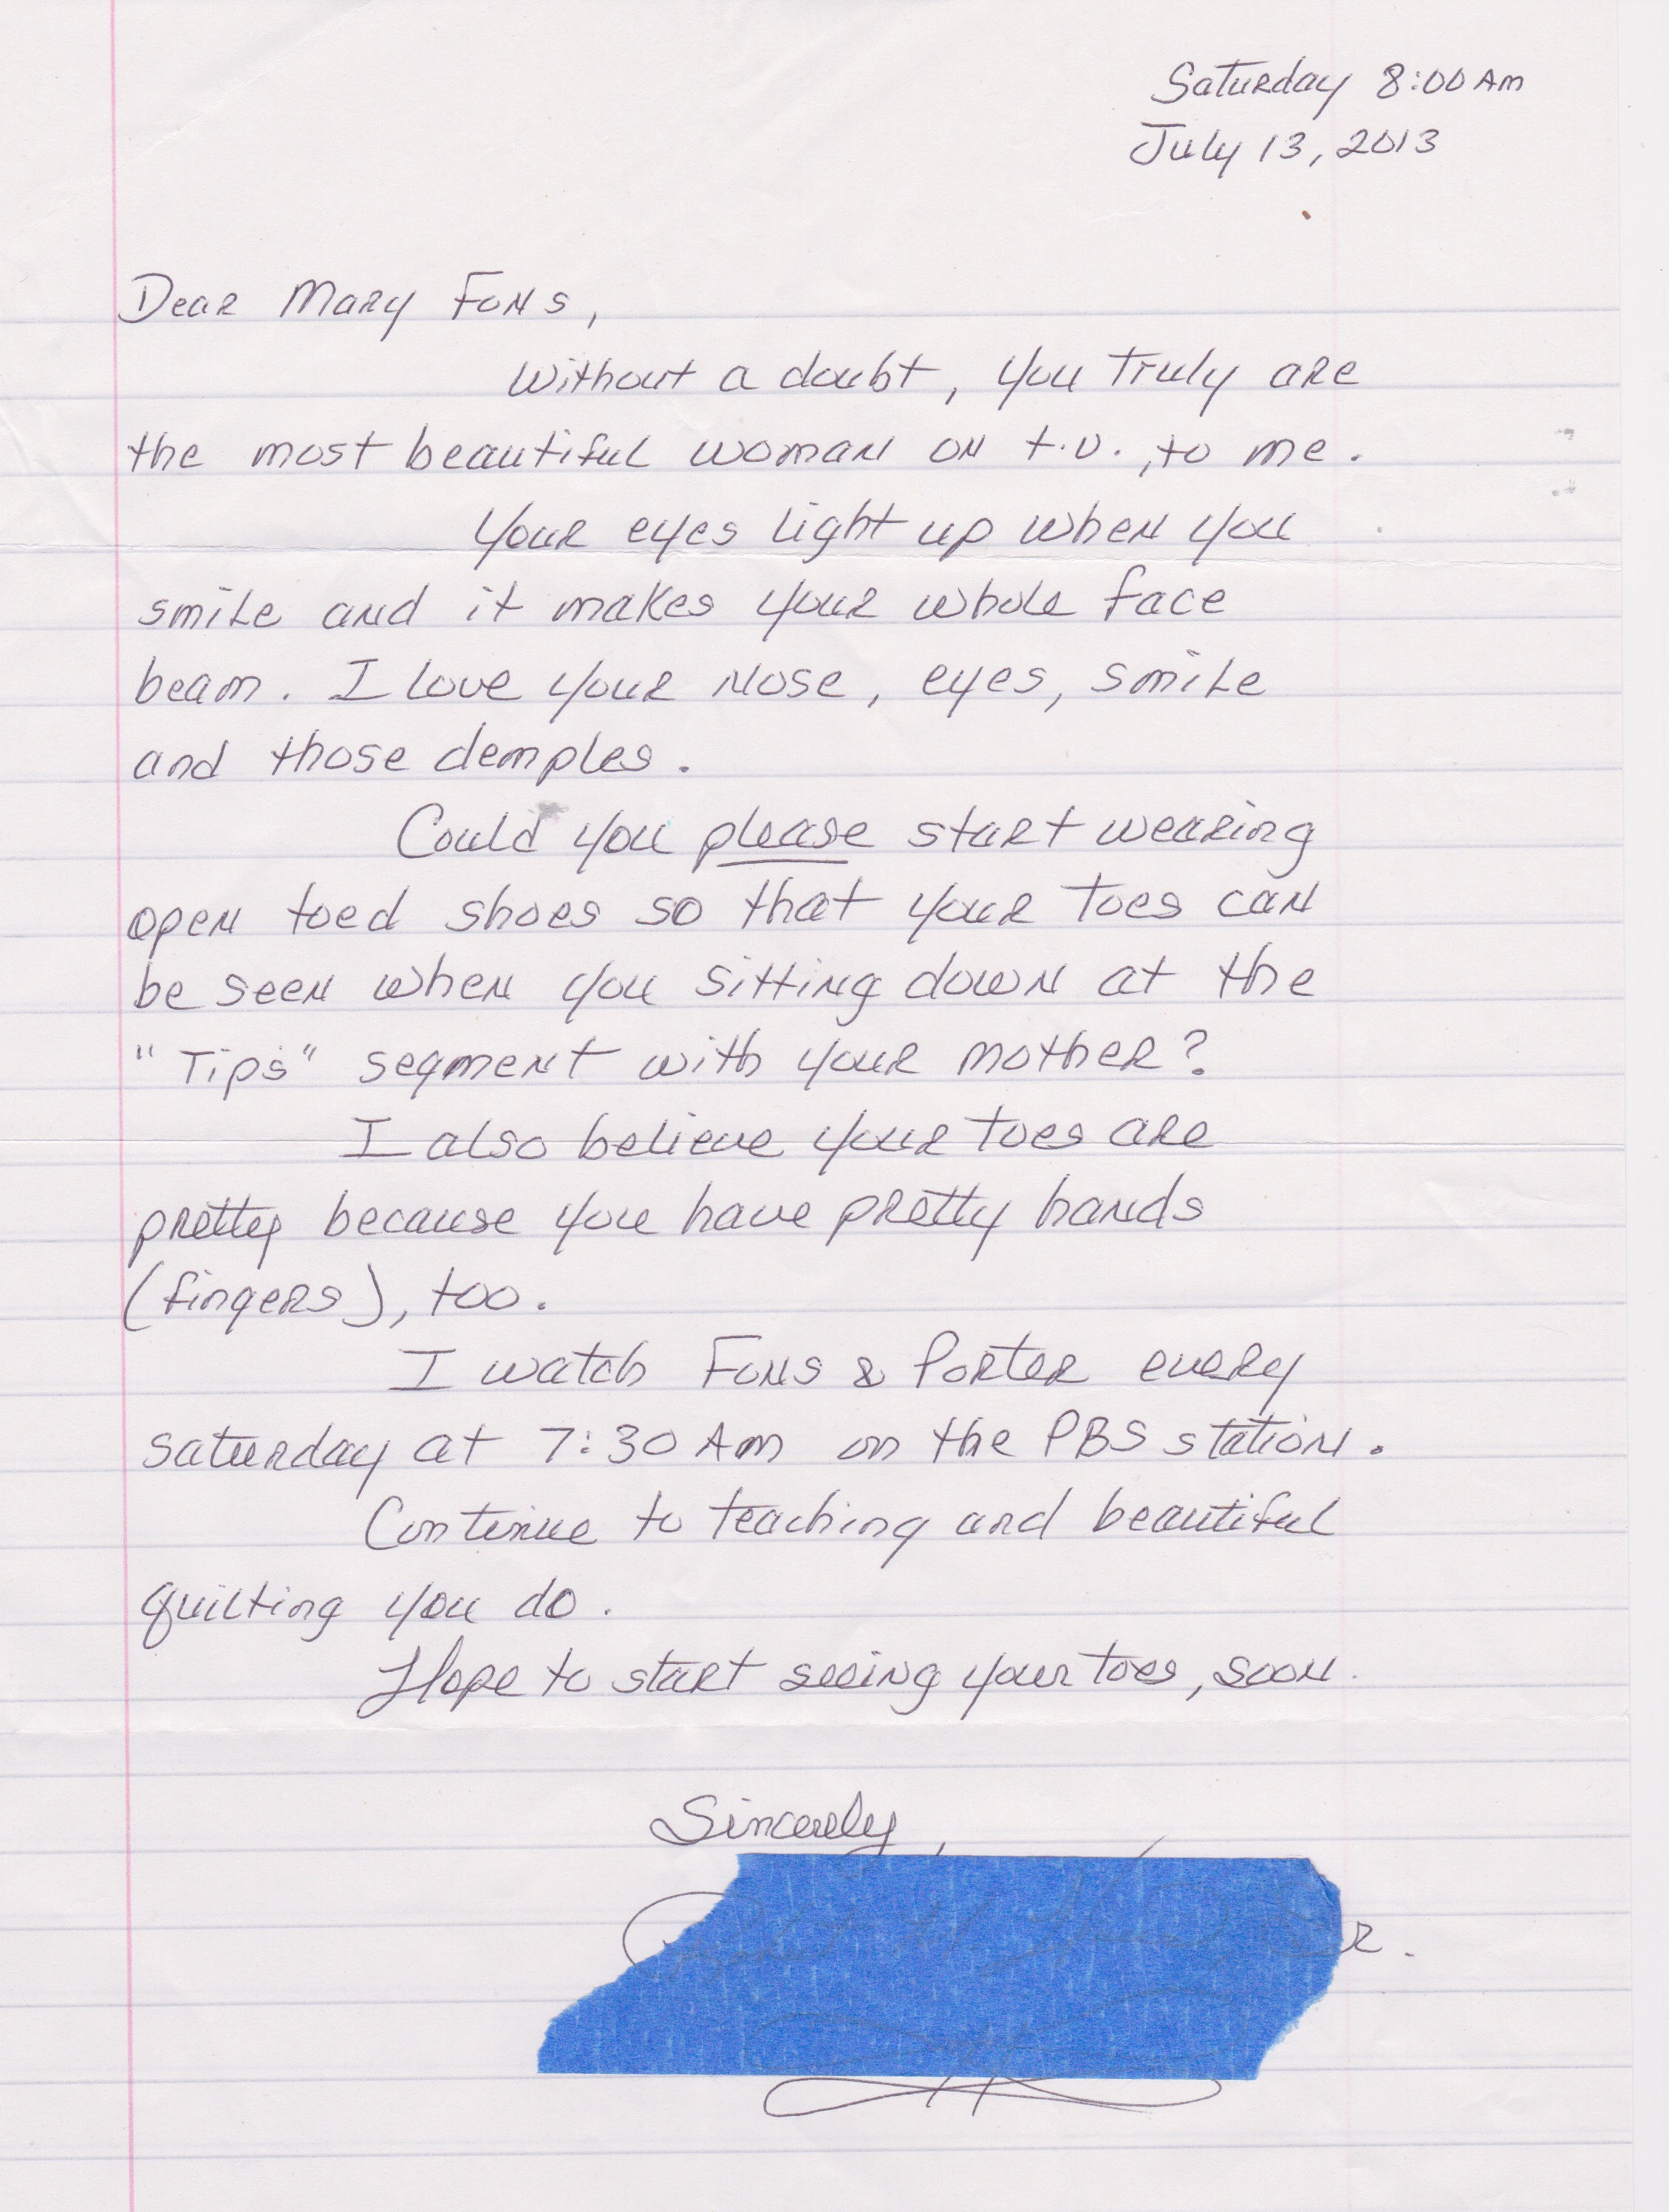 Saturday 8:00 AM
July 13, 2013
Dear Mary Fons,
Without a doubt, you truly are
the most beautiful woman on t.v., to me.
Your eyes light up when you
smile and it makes your whole face
beam. I love your nose, eyes, smile
and those demples.
Could you please start wearing
open toed shoes so that your toes can
be seen when you sitting down at the
"Tips" segment with your mother?
I also believe your toes are
pretty because you have pretty hands
(fingers), too.
I watch Fons & Porter every
saturday at 7:30 AM on the PBS station.
Continue to teaching and beautiful
quilting you do.
Hope to start seeing your toes, soon.
Sincerely,